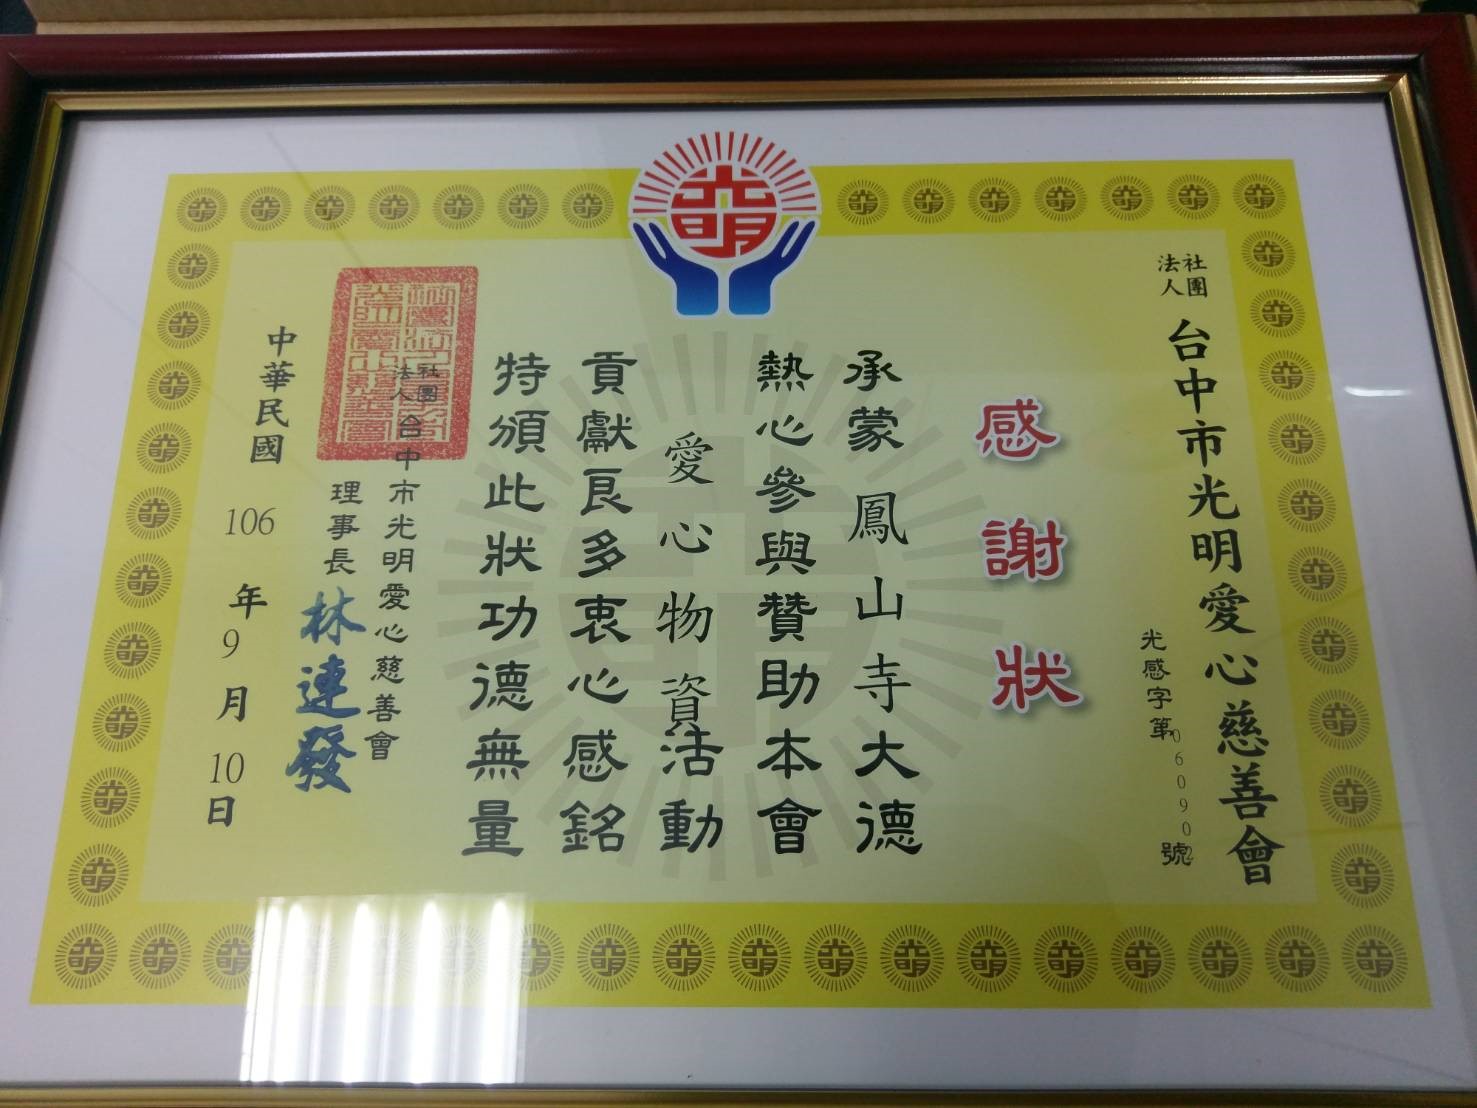 社團法人台中市光明愛心慈善會
光感字第0609002號
感謝狀
承蒙鳳山寺大德
熱心參與贊助本會
愛心物資活動
貢獻良多衷心感銘
特頒此狀功德無量
社團法人台中市光明愛心慈善會
理事長林連發
中華民國106年9月10日
光明